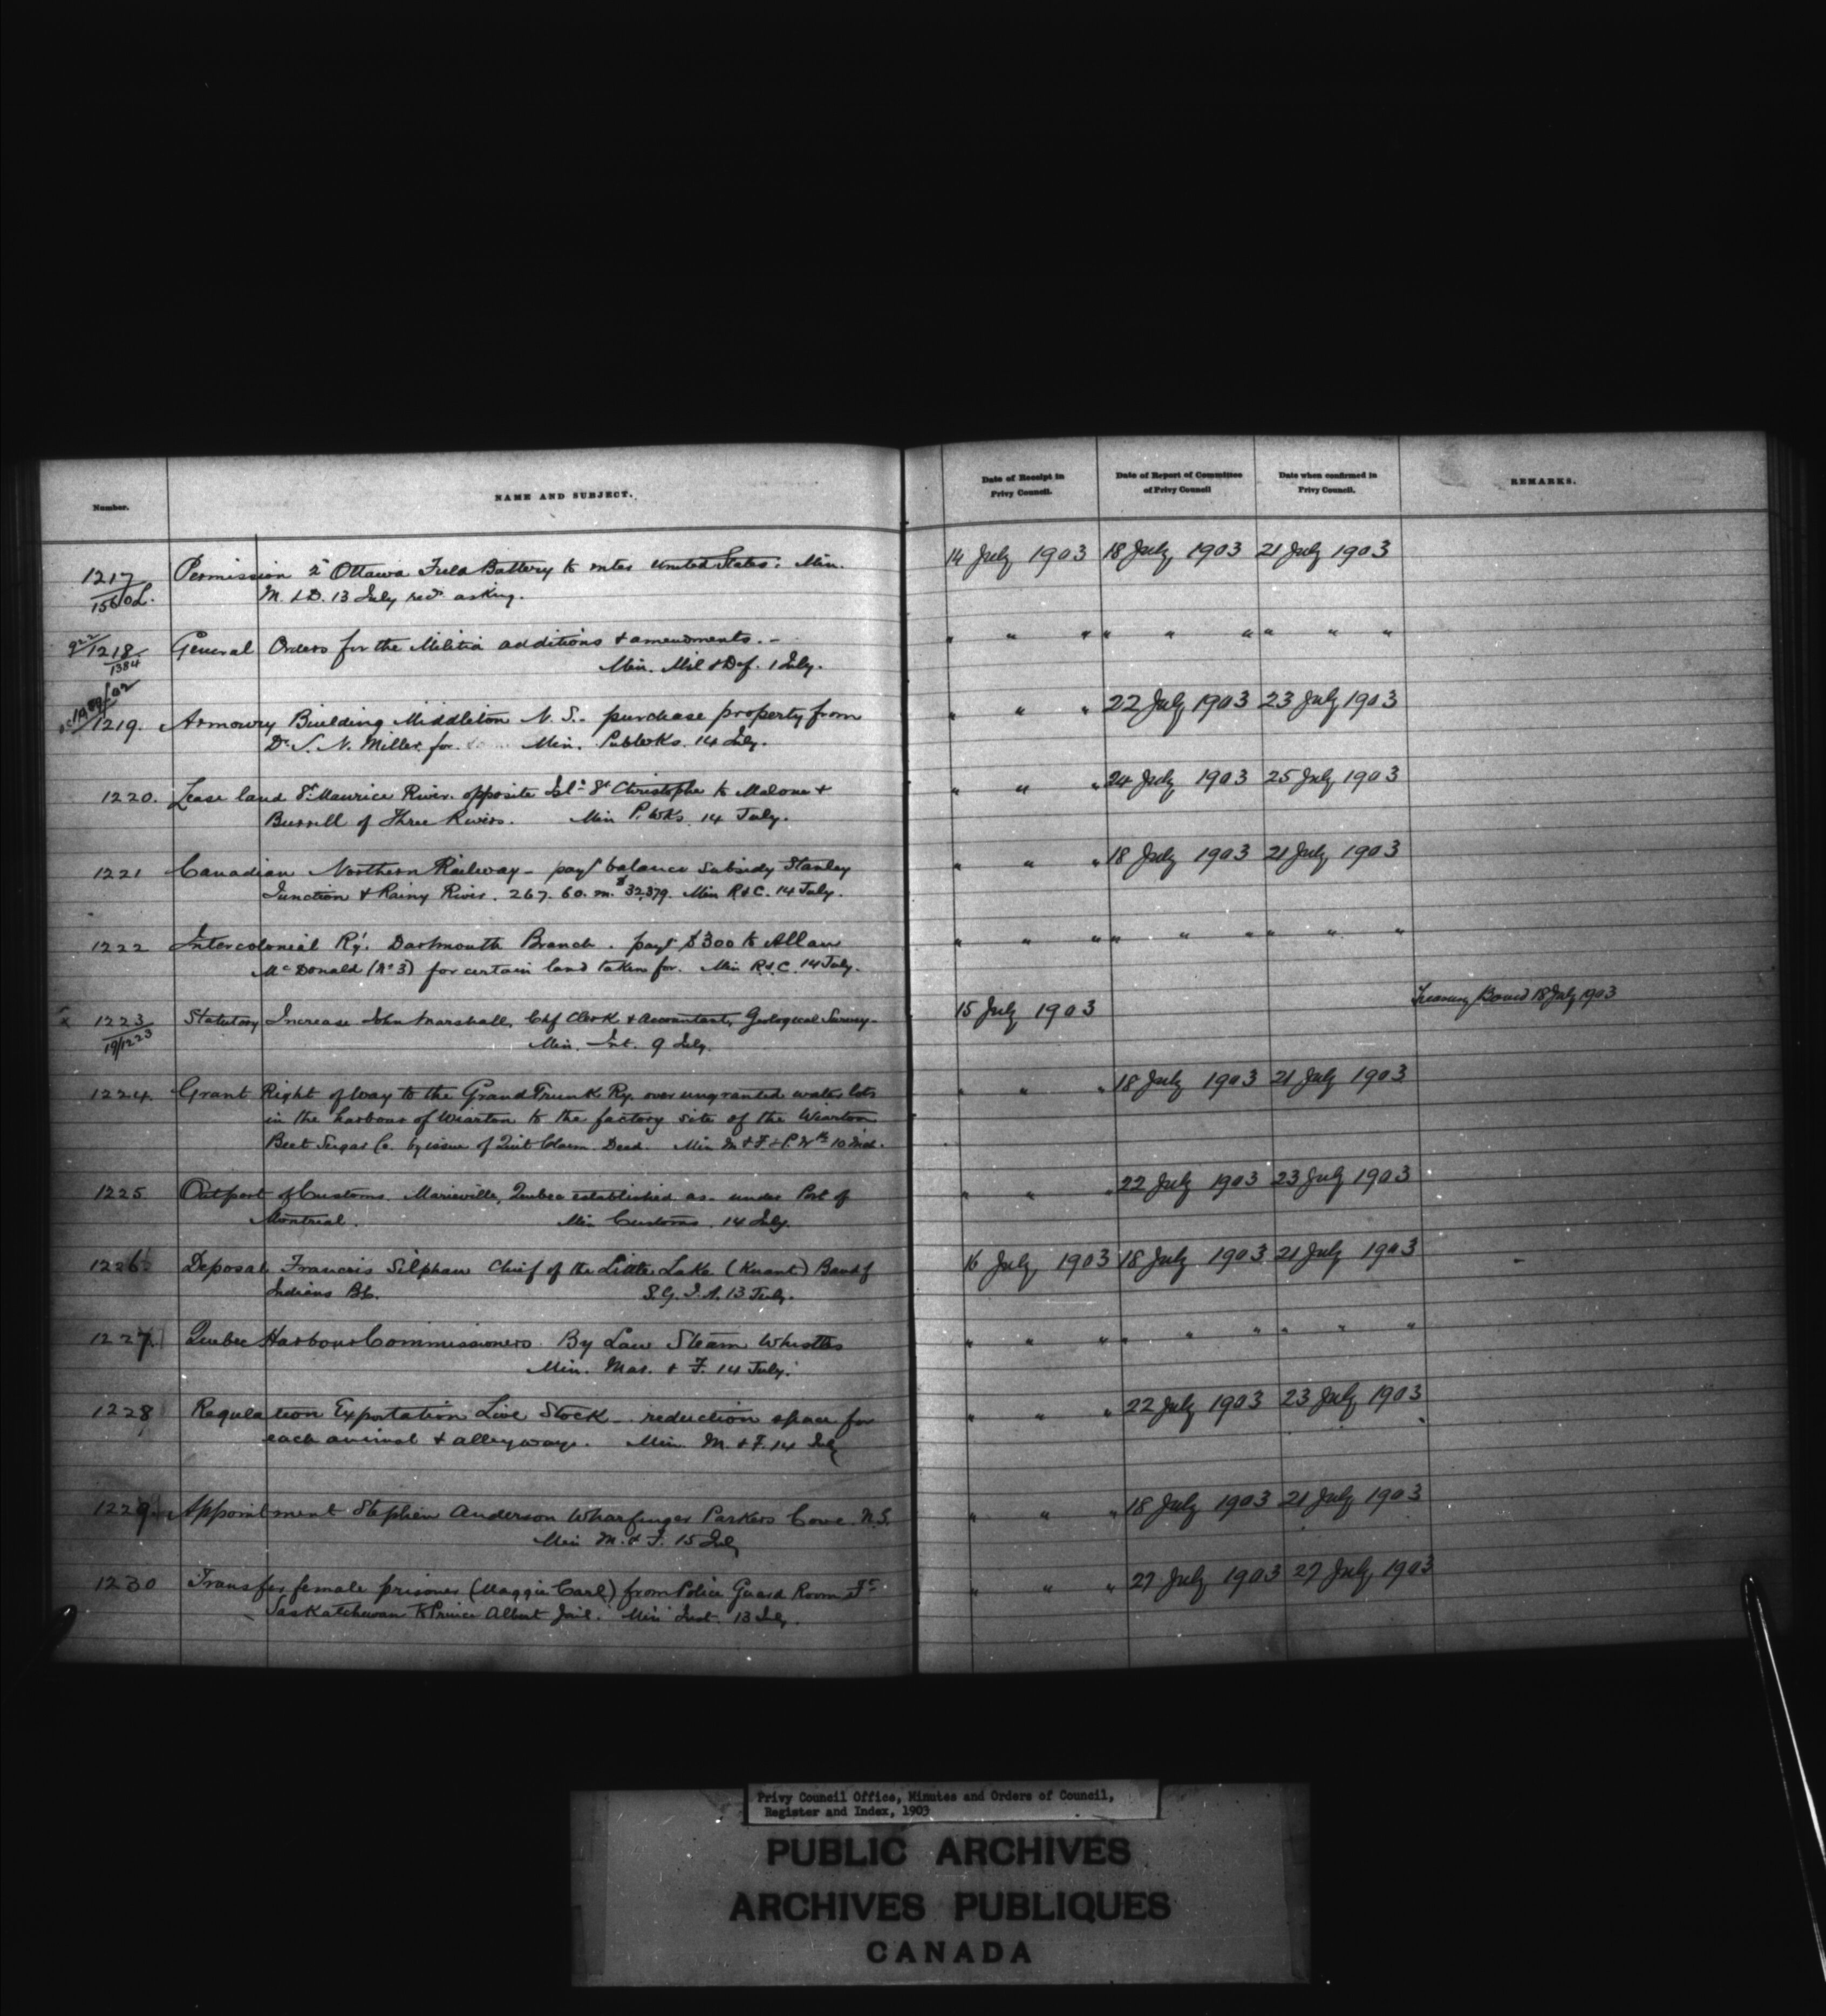 Number.
NAME AND SUBJECT.
Date of Receipt in Privy Council.
Date of Report of Committee of Privy Council
Date when confirmed in Privy Council.
REMARKS.
1217 Permission 2d Ottawa Field Battery to enter United States: Min. 14 July 1903 18 July 1903 21 July 1903
1560L. M. & D. 13 July recd asking.
922/1218 General Orders for the Militia additions & amendments. - " " " " " " " " "
1384 Min. Mil & Def. 1 July.
1219. Armoury Building Middleton N. S. - purchase property from " " " 22 July 1903 23 July 1903
Dr. S. N. Miller for Min. Pub Wks. 14 July.
1220. Lease land St. Maurice River opposite Isld St Christophe to Malone & " " " 24 July 1903 25 July 1903
Burrell of Three Rivers. Min P. Wks 14 July.
1221 Canadian Northern Railway - payt balance subsidy Stanley " " " 18 July 1903 21 July 1903
Junction & Rainy River. 267.60. m. $32,379. Min R & C. 14 July.
1222 Intercolonial Ry. Dartmouth Branch. payt $300 to Allan " " " " " " " " "
McDonald (No 3) for certain land taken for. Min R & C. 14 July.
1223 Statutory Increase John Marshall, Chf Clerk & Accountant, Geological Survey - 15 July 1903 Treasury Board 18 July 1903
19/1223 Min. Int. 9 July.
1224 Grant Right of way to the Grand Trunk Ry. over ungranted water lots " " " 18 July 1903 21 July 1903
in the harbour of Wiarton to the factory site of the Wiarton
Beet Sugar Co. by issue of Quit Claim Deed. Min M & F & P. Wks 10
1225 Outport of Customs Marieville, Quebec established as - under Port of " " " 22 July 1903 23 July 1903
Montreal. Min Customs. 14 July.
1226 Deposal Francois Silphan Chief of the Little Lake (Knant) Band of 16 July 1903 18 July 1903 21 July 1903
Indians B.C. S. G. I. A. 13 July.
1227 Quebec Harbour Commissioners By Law Steam Whistles " " " " " " " " "
Min. Mar. & F. 14 July.
1228 Regulation Exportation Live Stock - reduction space for " " " 22 July 1903 23 July 1903
each animal & alleyways. Min. M. & F. 14 July
1229. Appointment Stephen Anderson Wharfinger Parkers Cove N.S. " " " 18 July 1903 21 July 1903
Min M. & F. 15 July
1230 Transfer female prisoner (Maggie Carl) from Police Guard Room Ft. " " " 27 July 1903 27 July 1903
Saskatchewan to Prince Albert Jail. Min Just. 13 July.
Privy Council Office, Minutes and Orders of Council,
Register and Index, 1903
PUBLIC ARCHIVES
ARCHIVES PUBLIQUES
CANADA